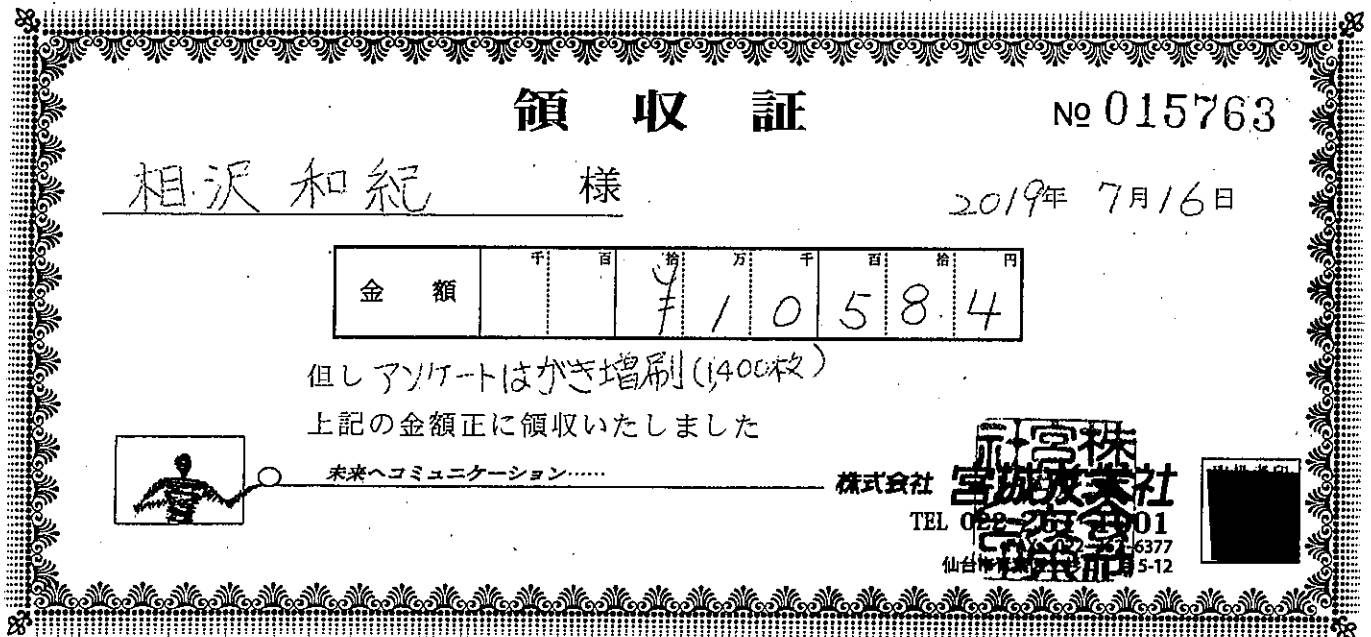 領収証
№ 015763
相沢 和紀 様
2019年 7月16日
金額 千 百 拾 万 千 百 拾 円
¥10584
但し アンケートはがき増刷(1,400枚)
上記の金額正に領収いたしました
未来へコミュニケーション……
株式会社
TEL 022
6377
仙台
5-12